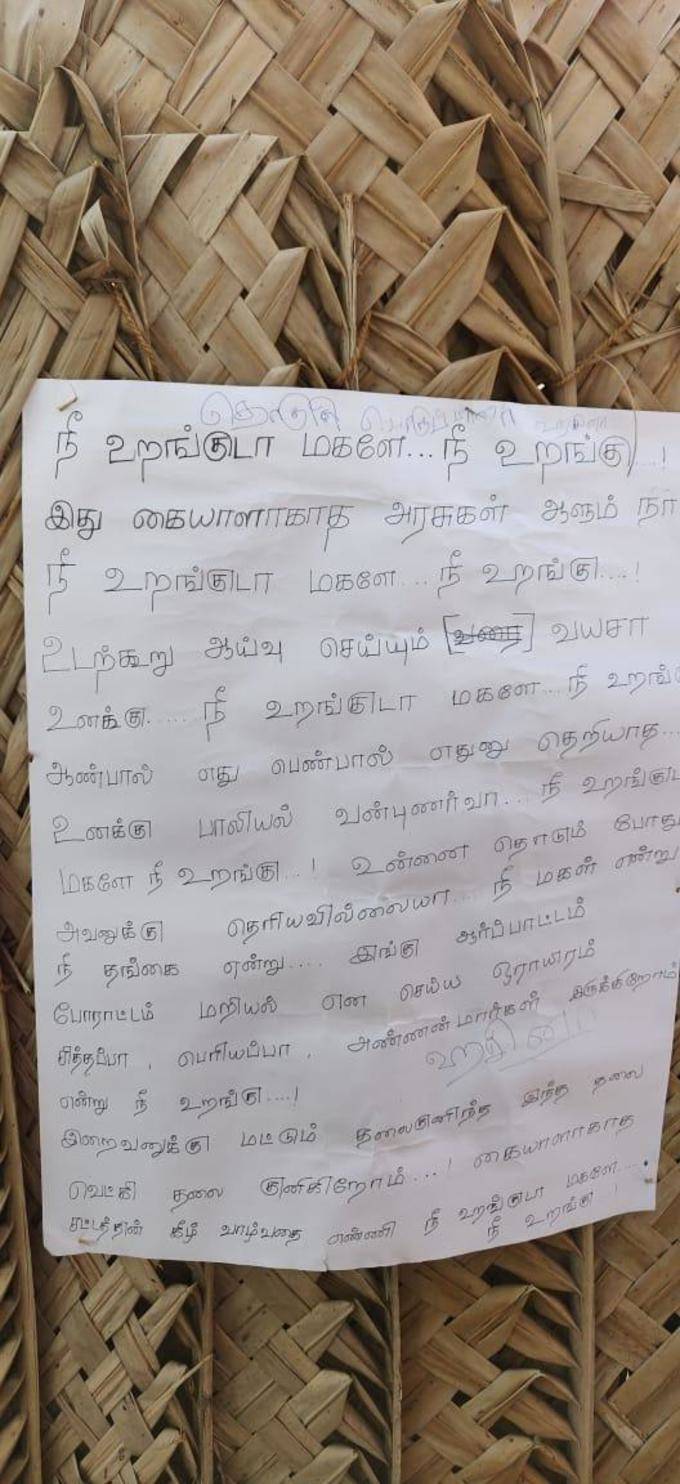 நீ உறங்குடா மகளே...நீ உறங்கு...!
இது கையாளாகாத அரசுகள் ஆளும்
நீ உறங்குடா மகளே...நீ உறங்கு....!
உடற்கூறு ஆய்வு செய்யும் வயசா
உனக்கு..... நீ உறங்கிடா மகளே...நீ
ஆண்பால் எது பெண்பால் எதுனு தெறியாத...
உனக்கு பாலியல் வன்புணர்வா... நீ
மகளே நீ உறங்கு...! உன்னை தொடும் போது
அவனுக்கு தெரியவில்லையா.... நீ மகள் என்று
நீ தங்கை என்று.... இங்கு ஆர்ப்பாட்டம்
போராட்டம் மறியல் என செய்ய ஓராயிரம்
சித்தப்பா , பெரியப்பா , அண்ணன்மார்கள் இருக்கிறோம்
என்று நீ உறங்கு....!
இறைவனுக்கு மட்டும் தலைகுனிந்த இந்த தலை
வெட்கி தலை குனிகிறோம்...! கையாளாகாத
சட்டத்தின் கீழ் வாழ்வதை எண்ணி நீ உறங்குடா மகளே....
நீ உறங்கு !